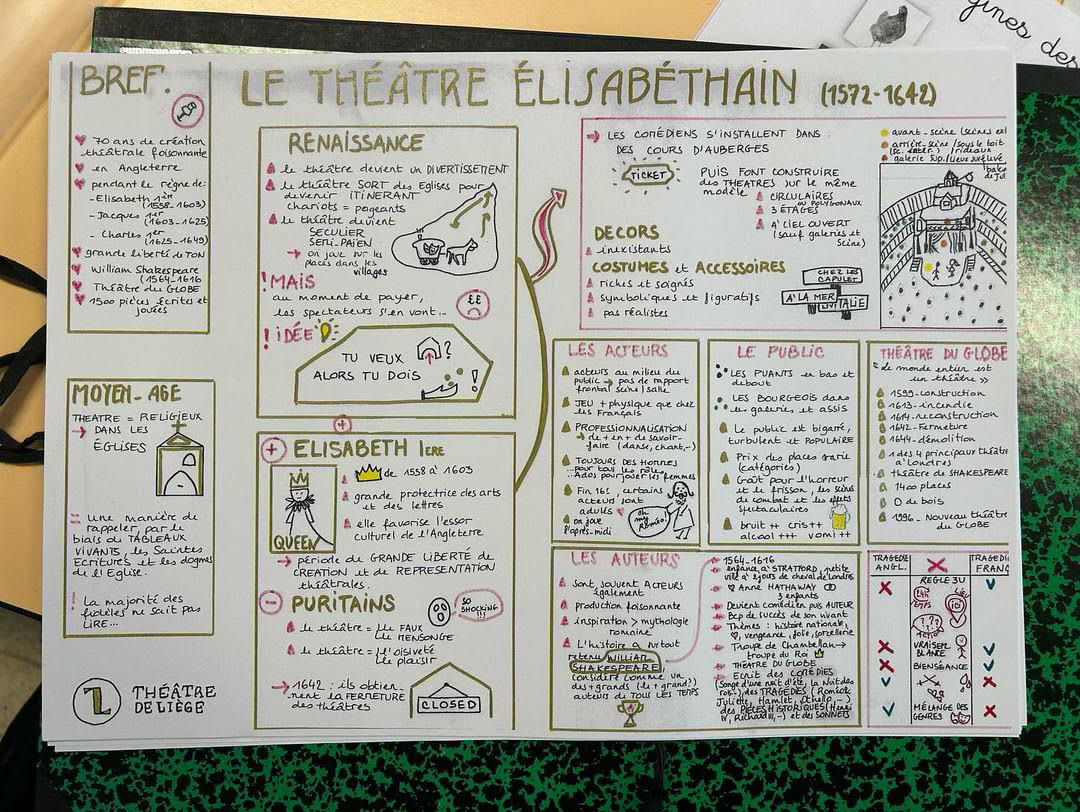 gines des
LE THÉÂTRE ÉLISABÉTHAIN (1572-1642)
BREF.
70 ans de création
théâtrale foisonnante
en Angleterre
pendant le règne de:
- Elisabeth 1ère
(1558-1603)
- Jacques 1er
(1603-1625)
- Charles 1er
(1625-1649)
grande liberté de TON
William Shakespeare
(1564-1616
Théâtre du GLOBE
1500 pièces écrites et
jouées
MOYEN-AGE
THEATRE = RELIGIEUX
→ DANS LES
ÉGLISES
= une manière de
rappeler, par le
biais de TABLEAUX
VIVANTS, les Saintes
Ecritures et les dogmes
de l'Eglise.
! La majorité des
fidèles ne sait pas
LIRE...
THÉÂTRE
DE LIÈGE
RENAISSANCE
le théâtre devient un DIVERTISSEMENT
le théâtre SORT des Eglises pour
devenir ITINERANT
chariots = pageants
le théâtre devient
SECULIER
SEMI-PAÏEN
→ on joue sur les
places dans les
villages
! MAIS
au moment de payer,
les spectateurs s'en vont...
££
! iDÉE
TU VEUX ?
ALORS TU DOIS !
+
+ ELISABETH IERE
de 1558 à 1603
grande protectrice des arts
et des lettres
elle favorise l'essor
culturel de l'Angleterre
QUEEN
→ période de GRANDE LIBERTÉ de
CREATION et de REPRESENTATION
théâtrales.
- PURITAINS
SO
SHOCKING
!!!
le théâtre = le FAUX
le MENSONGE
le théâtre = l'oisiveté
le plaisir
→ 1642 : ils obtien-
nent la FERMETURE
des théâtres
CLOSED
→ LES COMÉDIENS S'INSTALLENT DANS
DES COURS D'AUBERGES
TICKET
PUIS FONT CONSTRUIRE
des THEATRES sur le même
modèle
CIRCULAIRES
ou POLYGONAUX
3 ÉTAGES
A CIEL OUVERT
(sauf galeries et
scène)
DECORS
inexistants
COSTUMES et ACCESSOIRES
riches et soignés
symboliques et figuratifs
pas réalistes
CHEZ LES
CAPULET
A LA MER
ITALIE
avant-scène (scènes ext
arrière-scène / sous le toit
/ rideaux
galerie sup. / lieu surélevé
LES ACTEURS
acteurs au milieu du
public → pas de rapport
frontal scène/salle
JEU + physique que chez
les Français
PROFESSIONNALISATION
→ de + en + de savoir-
faire (danse, chant...)
TOUJOURS DES HOMMES
...pour tous les rôles
...Ados pour jouer les femmes
Fin 16è, certains
acteurs sont
adulés
on joue
l'après-midi
Oh
my
Roméo!
LE PUBLIC
LES PUANTS en bas et
debout
LES BOURGEOIS dans
les galeries et assis
Le public est bigarré,
turbulent et POPULAIRE
Prix des places varié
(catégories)
Goût pour l'horreur
et le frisson, les scènes
de combat et les effets
spectaculaires
bruit ++ cris ++
alcool +++ vomi ++
THÉÂTRE DU GLOBE
"Le monde entier est
un théâtre"
1599-construction
1613-incendie
1614-reconstruction
1642-Fermeture
1644-démolition
1 des 4 principaux théâtres
à Londres
théâtre de SHAKESPEARE
1400 places
O de bois
1996-Nouveau théâtre
du GLOBE
LES AUTEURS
sont souvent ACTEURS
également
production foisonnante
inspiration > mythologie
romaine
L'histoire a surtout
retenu WILLIAM
SHAKESPEARE
considéré comme un
des + grands (le + grand?)
auteurs de TOUS LES TEMPS
1564-1616
enfance à STRATFORD, petite
ville à 2 jours de cheval de Londres
Anne HATHAWAY
3 enfants
Devient comédien puis AUTEUR
Bcp de succès de son vivant
Thèmes : histoire nationale,
vengeance, folie, sorcellerie
Troupe de Chambellan →
troupe du Roi
THÉÂTRE DU GLOBE
Ecrit des COMÉDIES
(Songe d'une nuit d'été, la Nuit des
rois...) des TRAGÉDIES (Roméo &
Juliette, Hamlet, Othello...)
des PIÈCES HISTORIQUES (Henri
IV, Richard III,...) et des SONNETS
TRAGEDIE
ANGL.
TRAGEDI
FRANÇ
REGLE 3U
24h
TEMPS
LIEU
ici
???
ACTION
VRAISEM
BLANCE
BIENSÉANCE
MÉLANGE DES
GENRES